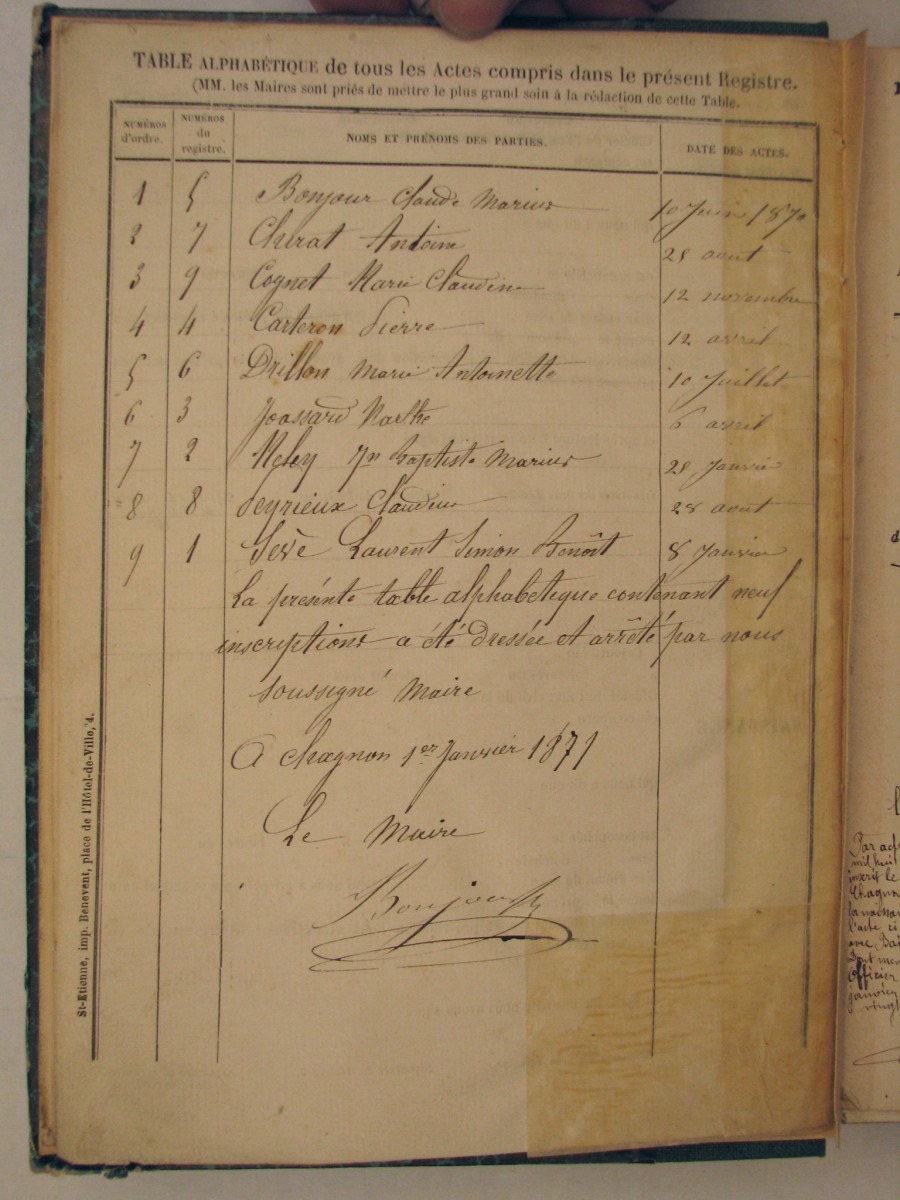 TABLE ALPHABÉTIQUE de tous les Actes compris dans le présent Registre.
(MM. les Maires sont priés de mettre le plus grand soin à la rédaction de cette Table.
NUMÉROS d'ordre. NUMÉROS du registre. NOMS ET PRÉNOMS DES PARTIES. DATE DES ACTES.
1 5 Bonjour Claude Marius 10 Juin 1870
2 7 Chirat Antoine 28 aout
3 9 Cognet Marie Claudine 12 novembre
4 4 Carteron Pierre 12 avril
5 6 Drillon Marie Antoinette 10 Juillet
6 3 Joassard Marthe 6 avril
7 2 Jn Baptiste Marius 28 Janvier
8 8 Peyrieux Claudine 28 aout
9 1 Sève Laurent Simon Benoît 8 Janvier
La présente table alphabetique contenant neuf
inscriptions a été dressée et arrêté par nous
soussigné Maire
A Chagnon 1er Janvier 1871
Le Maire
Bonjour
St-Etienne, imp. Benevent, place de l'Hôtel-de-Ville, 4.
Par
mil huit
inscrit le
Chagnon
l'acte ci
avec
Officier
janvier
vingt